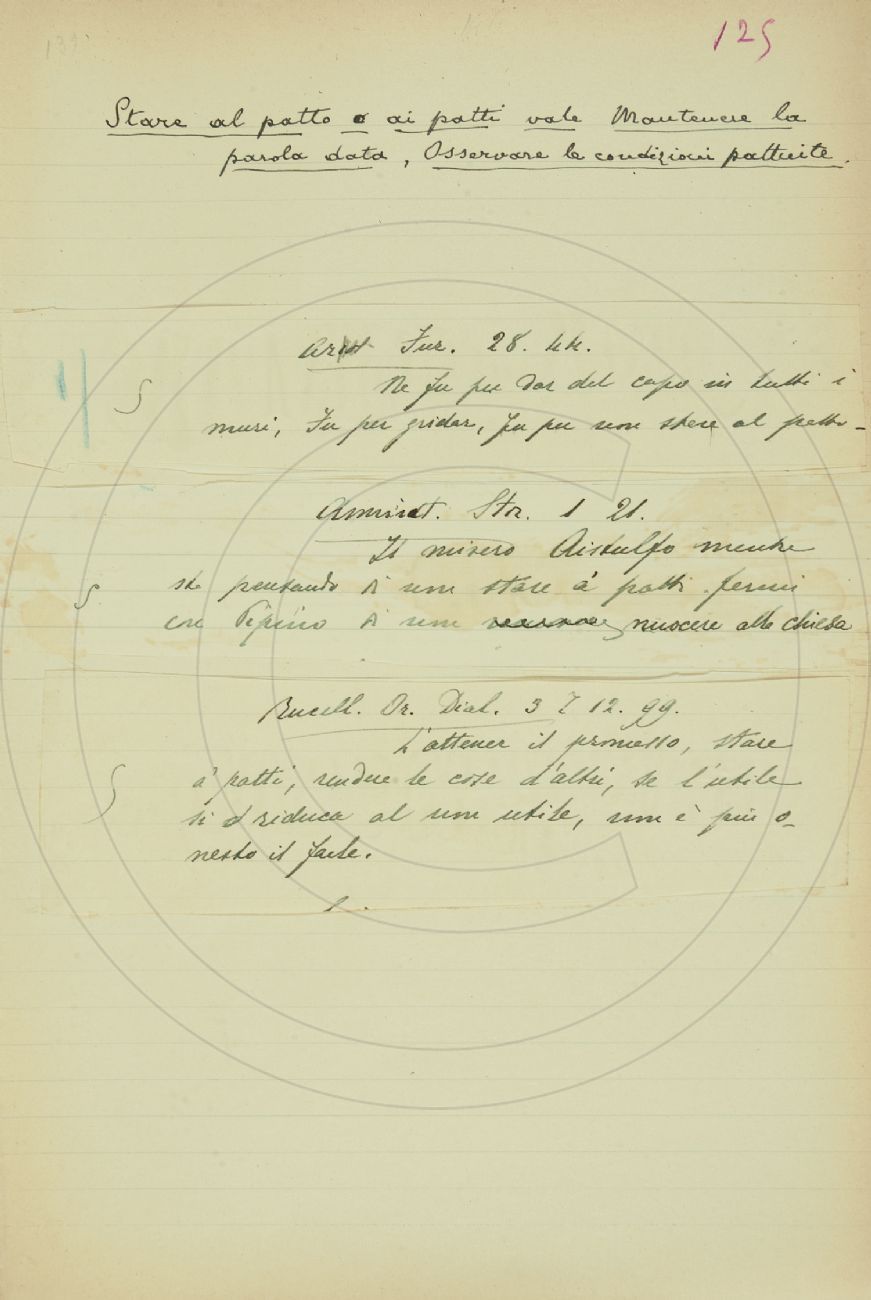 125
Stare al patto o ai patti vale Mantenere la
parola data, Osservare le condizioni pattuite.
Ariost. Fur. 28. 44.
Ne fu per dar del capo in tutti i
muri, Fu per gridar, fu per non stare al patto
Ammirat. Stor. 1 21.
Il misero Aistulfo mentre
sta pensando di non stare a' patti fermi
con Pipino di non nuocere alla chiesa
Rucell. Or. Dial. 3 7 12. 99.
L'attener il promesso, stare
a' patti, rendere le cose d'altri, se l'utile
si riduca al non utile, non è più o-
nesto il farle.